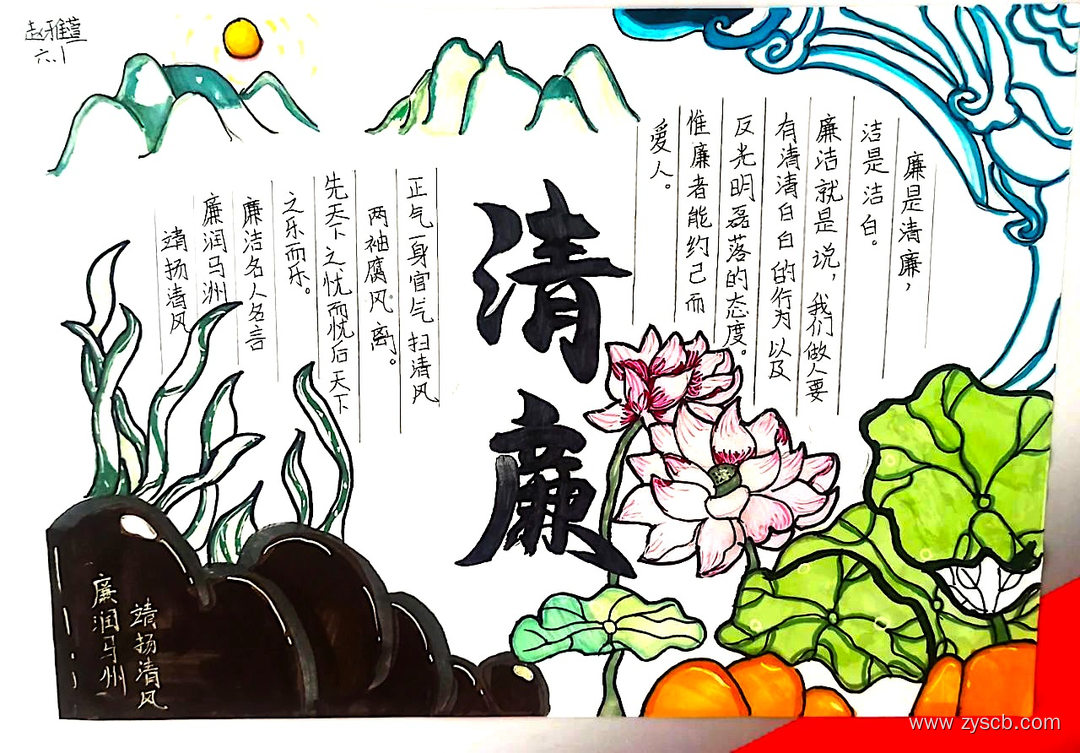 赵雅萱
六.1
廉是清廉，
洁是洁白。
廉洁就是说，我们做人要
有清清白白的行为以及
反光明磊落的态度。
惟廉者能约己而
爱人。
清廉
正气一身官气扫清风
两袖腐风离。
先天下之忧而忧后天下
之乐而乐。
廉洁名人名言
廉润马洲
靖扬清风
靖扬清风
廉润马州
www.zyscb.com